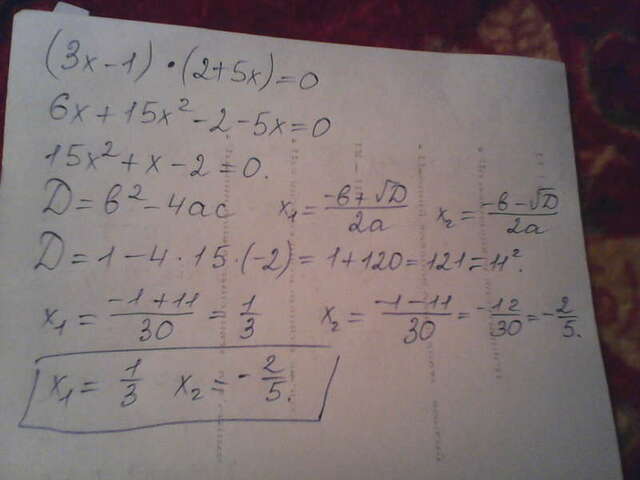 (3x-1)•(2+5x)=0
6x+15x²-2-5x=0
15x²+x-2=0.
D=b²-4ac x₁=(-b+√D)/2a x₂=(-b-√D)/2a
D=1-4·15·(-2)=1+120=121=11².
x₁=(-1+11)/30=1/3 x₂=(-1-11)/30=-12/30=-2/5.
x₁=1/3 x₂=-2/5.